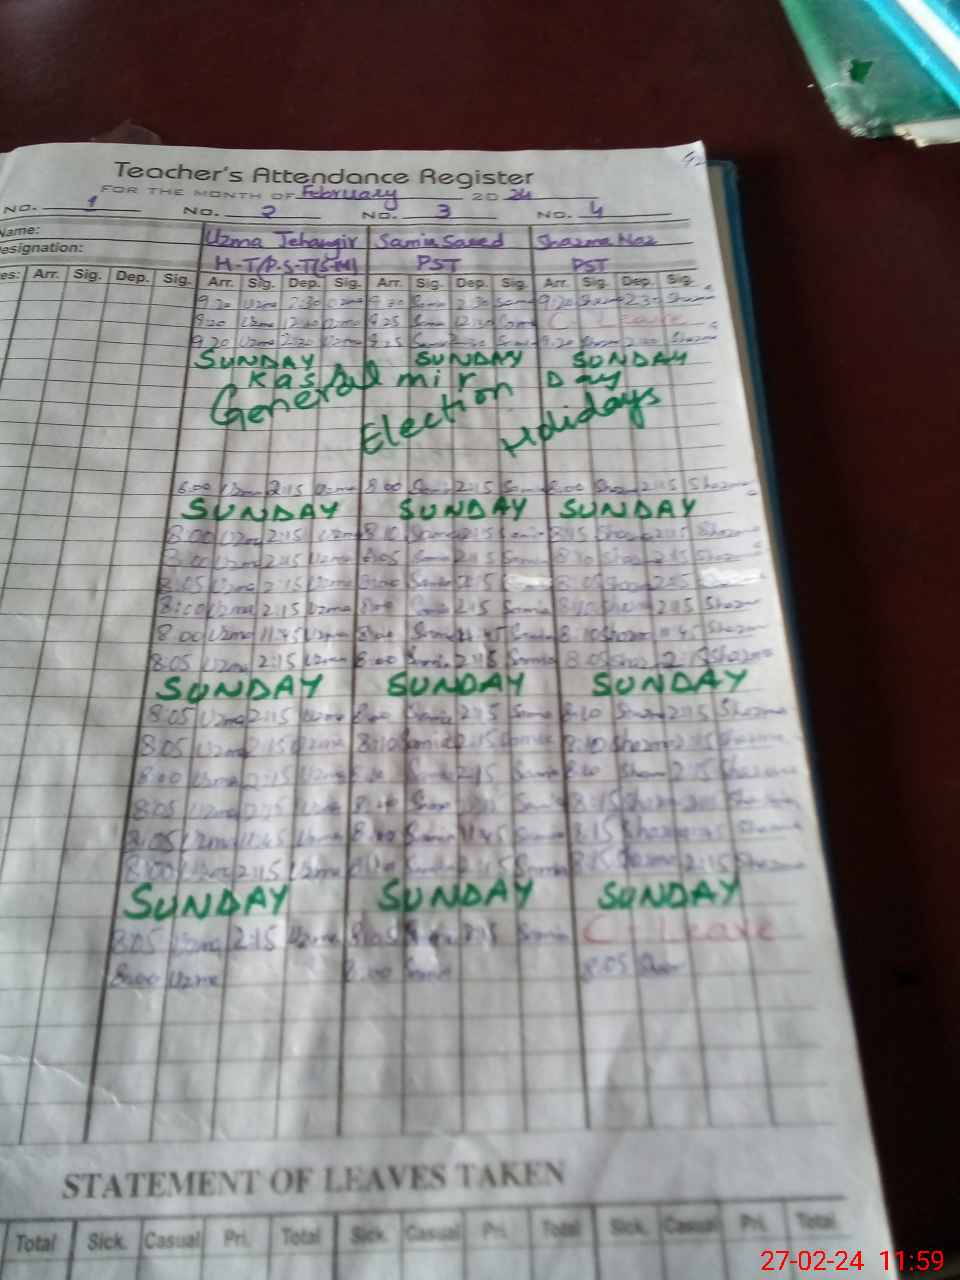 Teacher's Attendance Register
FOR THE MONTH OF February 2024
NO. 1 NO. 2 NO. 3 NO. 4
Name: Uzma Jehangir Samia Saeed Shazma Naz
esignation: H-T(P.S.T(S.M) PST PST
es: Arr. Sig. Dep. Sig. Arr. Sig. Dep. Sig. Arr. Sig. Dep. Sig. Arr. Sig. Dep. Sig.
9.20 Uzma 2:30 Uzma 9.20 Samia 2:30 Samia 9:20 Shazma 2:30 Shazma
C - Leave
9.20 Uzma
SUNDAY SUNDAY SUNDAY
Kashmir Day
General Election Holidays
8.00 Uzma 2:15 Uzma 8:00 Samia 2:15 Samia 8:00 Shazma 2:15 Shazma
SUNDAY SUNDAY SUNDAY
8:00 Uzma 2:15 Uzma 8:10 Samia 2:15 Samia 8:15 Shazma 2:15 Shazma
8:00 Uzma 2:15 Uzma 8:05 Samia 2:15 Samia 8:10 Shazma 2:15 Shazma
8:05 Uzma 2:15 Uzma 8:00 Samia 2:15 8:05 Shazma 2:15
8:00 Uzma 2:15 Uzma 8:00 Samia 2:15 Samia 8:10 Shazma 2:15 Shazma
8:00 Uzma 11:45 Uzma 8:00 Samia 11:45 Samia 8:10 Shazma 11:45 Shazma
8:05 Uzma 2:15 Uzma 8:00 Samia 2:15 Samia 8:05 Shazma 2:15 Shazma
SUNDAY SUNDAY SUNDAY
8:05 Uzma 2:15 Uzma 8:00 Samia 2:15 Samia 8:10 Shazma 2:15 Shazma
8:05 Uzma 2:15 Uzma 8:10 Samia 2:15 Samia 8:10 Shazma 2:15 Shazma
8:00 Uzma 2:15 Uzma Samia 2:15 Samia Shazma 2:15 Shazma
8:05 Uzma 2:15 Uzma Samia 8:15 Shazma Shazma
8:05 Uzma 11:45 Uzma 8:00 Samia 11:45 Samia 8:15 Shazma Shazma
8:00 Uzma 2:15 Uzma Samia 2:15 Samia 8:15 Shazma 2:15 Shazma
SUNDAY SUNDAY SUNDAY
8:05 Uzma 2:15 Uzma 8:05 2:15 Samia C - Leave
8:00 Uzma 8:00 Samia 8:05 Shazma
STATEMENT OF LEAVES TAKEN
Total Sick. Casual Pri. Total Sick. Casual Pri. Total Sick. Casual Pri. Total
27-02-24 11:59